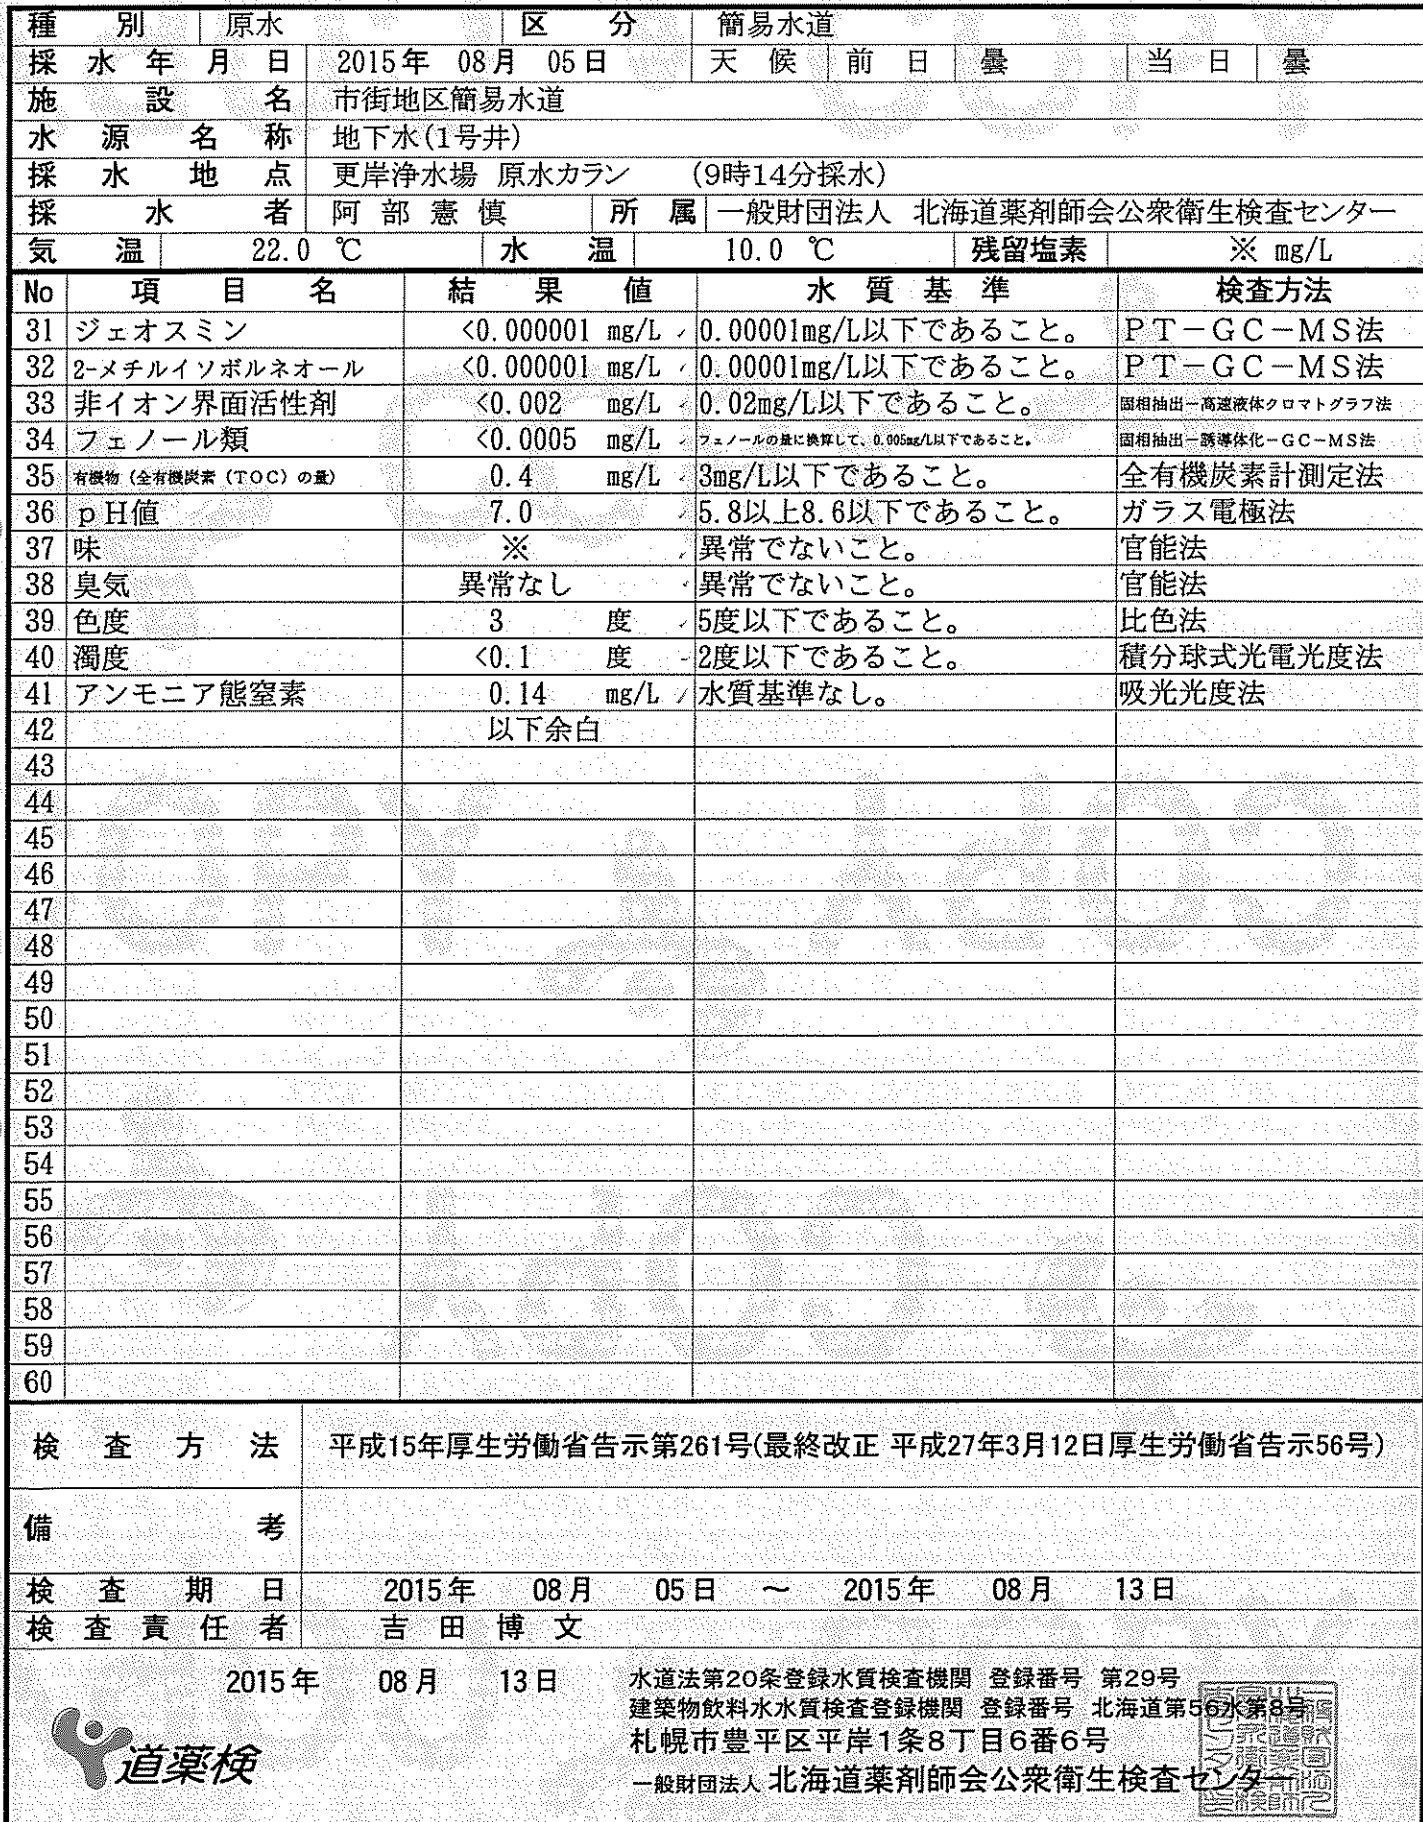 種別 原水 区分 簡易水道
採水年月日 2015年 08月 05日 天候 前日 曇 当日 曇
施設名 市街地区簡易水道
水源名称 地下水(1号井)
採水地点 更岸浄水場 原水カラン (9時14分採水)
採水者 阿部憲慎 所属 一般財団法人 北海道薬剤師会公衆衛生検査センター
気温 22.0 ℃ 水温 10.0 ℃ 残留塩素 ※ mg/L
No 項目名 結果値 水質基準 検査方法
31 ジェオスミン <0.000001 mg/L 0.00001mg/L以下であること。 PT－GC－MS法
32 2-メチルイソボルネオール <0.000001 mg/L 0.00001mg/L以下であること。 PT－GC－MS法
33 非イオン界面活性剤 <0.002 mg/L 0.02mg/L以下であること。 固相抽出－高速液体クロマトグラフ法
34 フェノール類 <0.0005 mg/L フェノールの量に換算して、0.005mg/L以下であること。 固相抽出－誘導体化－GC－MS法
35 有機物（全有機炭素（TOC）の量） 0.4 mg/L 3mg/L以下であること。 全有機炭素計測定法
36 pH値 7.0 5.8以上8.6以下であること。 ガラス電極法
37 味 ※ 異常でないこと。 官能法
38 臭気 異常なし 異常でないこと。 官能法
39 色度 3 度 5度以下であること。 比色法
40 濁度 <0.1 度 2度以下であること。 積分球式光電光度法
41 アンモニア態窒素 0.14 mg/L 水質基準なし。 吸光光度法
42 以下余白
43
44
45
46
47
48
49
50
51
52
53
54
55
56
57
58
59
60
検査方法 平成15年厚生労働省告示第261号(最終改正 平成27年3月12日厚生労働省告示56号)
備考
検査期日 2015年 08月 05日 ～ 2015年 08月 13日
検査責任者 吉田博文
2015年 08月 13日
水道法第20条登録水質検査機関 登録番号 第29号
建築物飲料水水質検査登録機関 登録番号 北海道第56水第8号
札幌市豊平区平岸1条8丁目6番6号
一般財団法人 北海道薬剤師会公衆衛生検査センター
道薬検